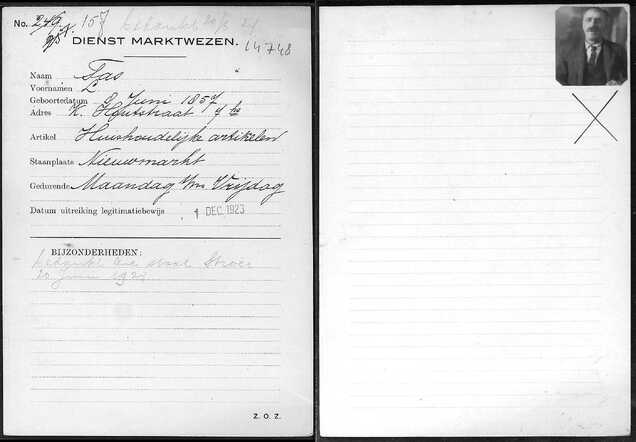 No. 249. 157
DIENST MARKTWEZEN. 14748
Naam Tas
Voornamen L
Geboortedatum 8 Juni 1857
Adres K. Houtstraat 7 hs
Artikel Huishoudelijke artikelen
Staanplaats Nieuwmarkt
Gedurende Maandag t/m Vrijdag
Datum uitreiking legitimatiebewijs 1 DEC. 1923
BIJZONDERHEDEN:
20 Juni 1924
Z. O. Z.